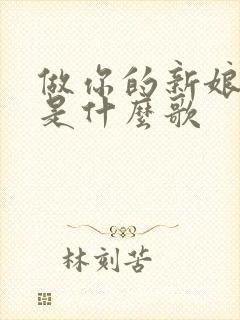 做你的新娘
是什麼歌
林刻苦